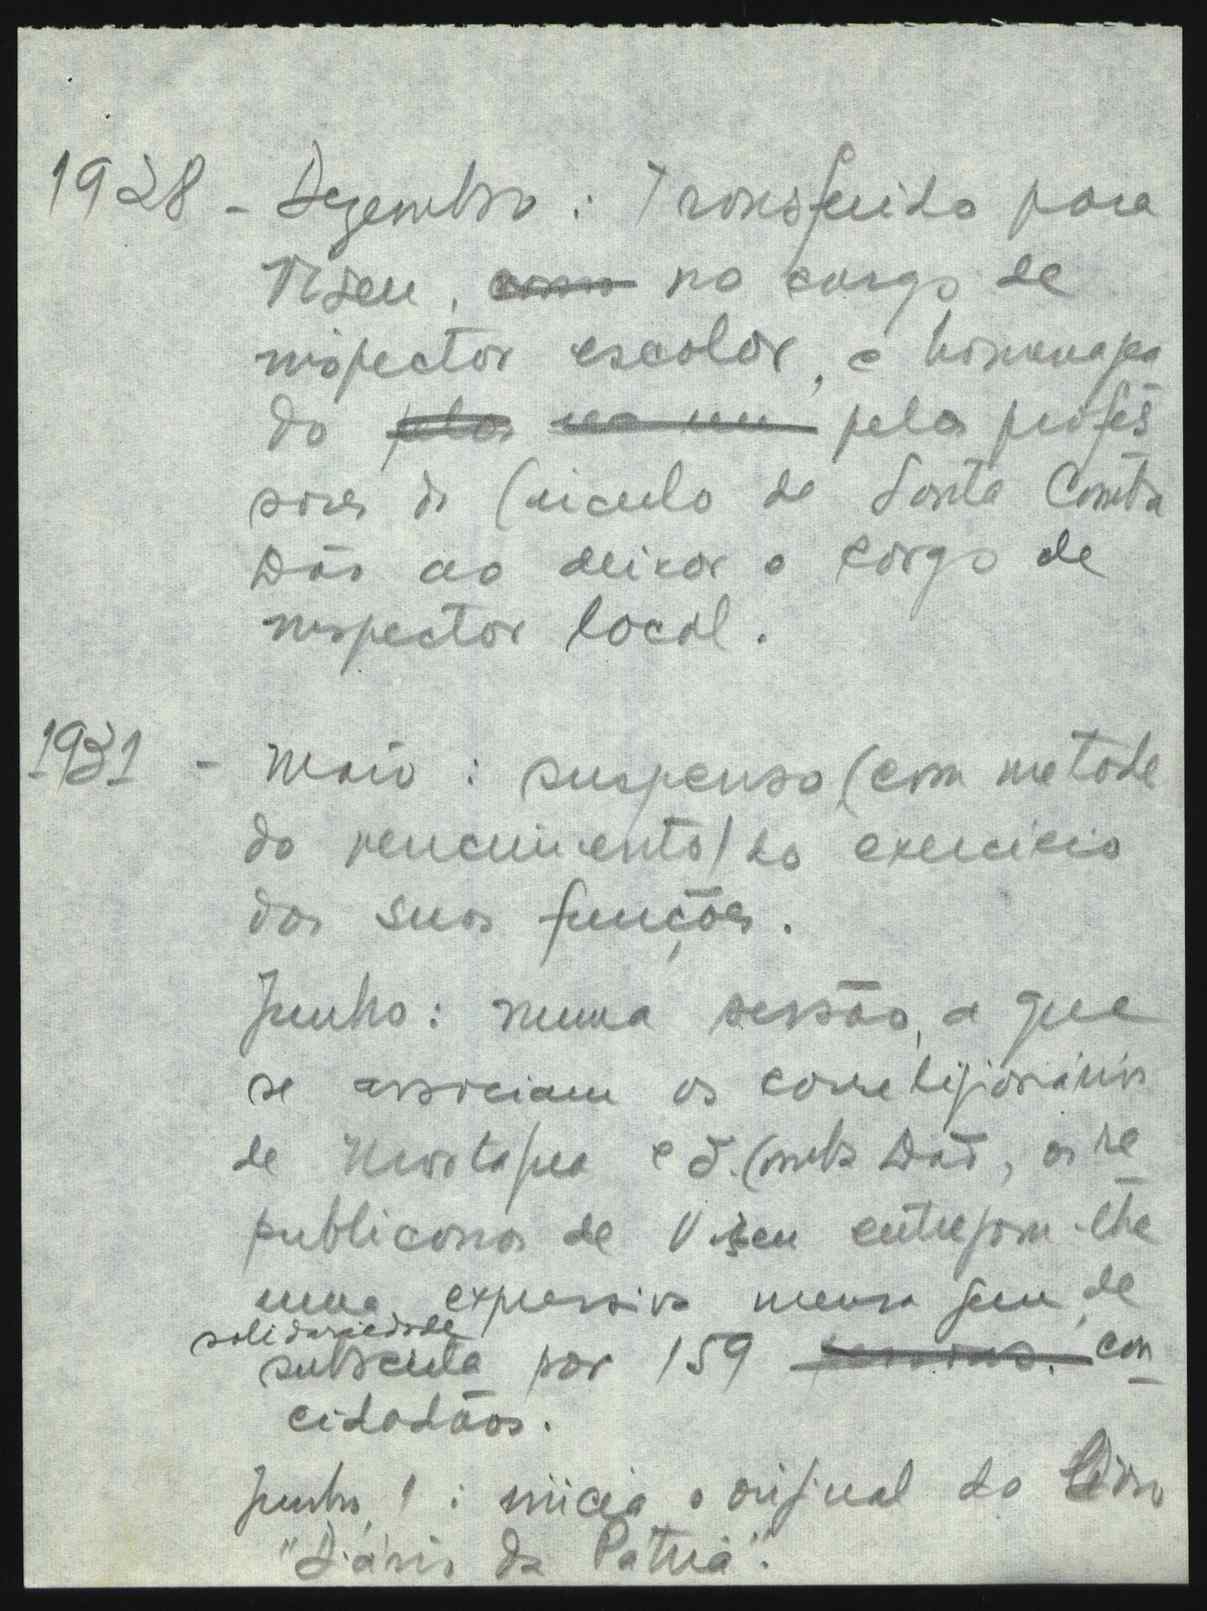 1928 - Dezembro : Transferido para
Viseu, no cargo de
inspector escolar, é homenagea
do pelos profes
sores do Círculo de Santa Comba
Dão ao deixar o cargo de
inspector local.
1931 - Maio : suspenso (com metade
do vencimento) do exercício
das suas funções.
Junho : numa sessão, a que
se associam os correligionários
de Mortágua e S. Comba Dão, os re
publicanos de Viseu entregam-lhe
uma expressiva mensagem, de
solidariedade
subscrita por 159 con
cidadãos.
Junho, 1 : inicia o original do livro
"Diário da Pátria".